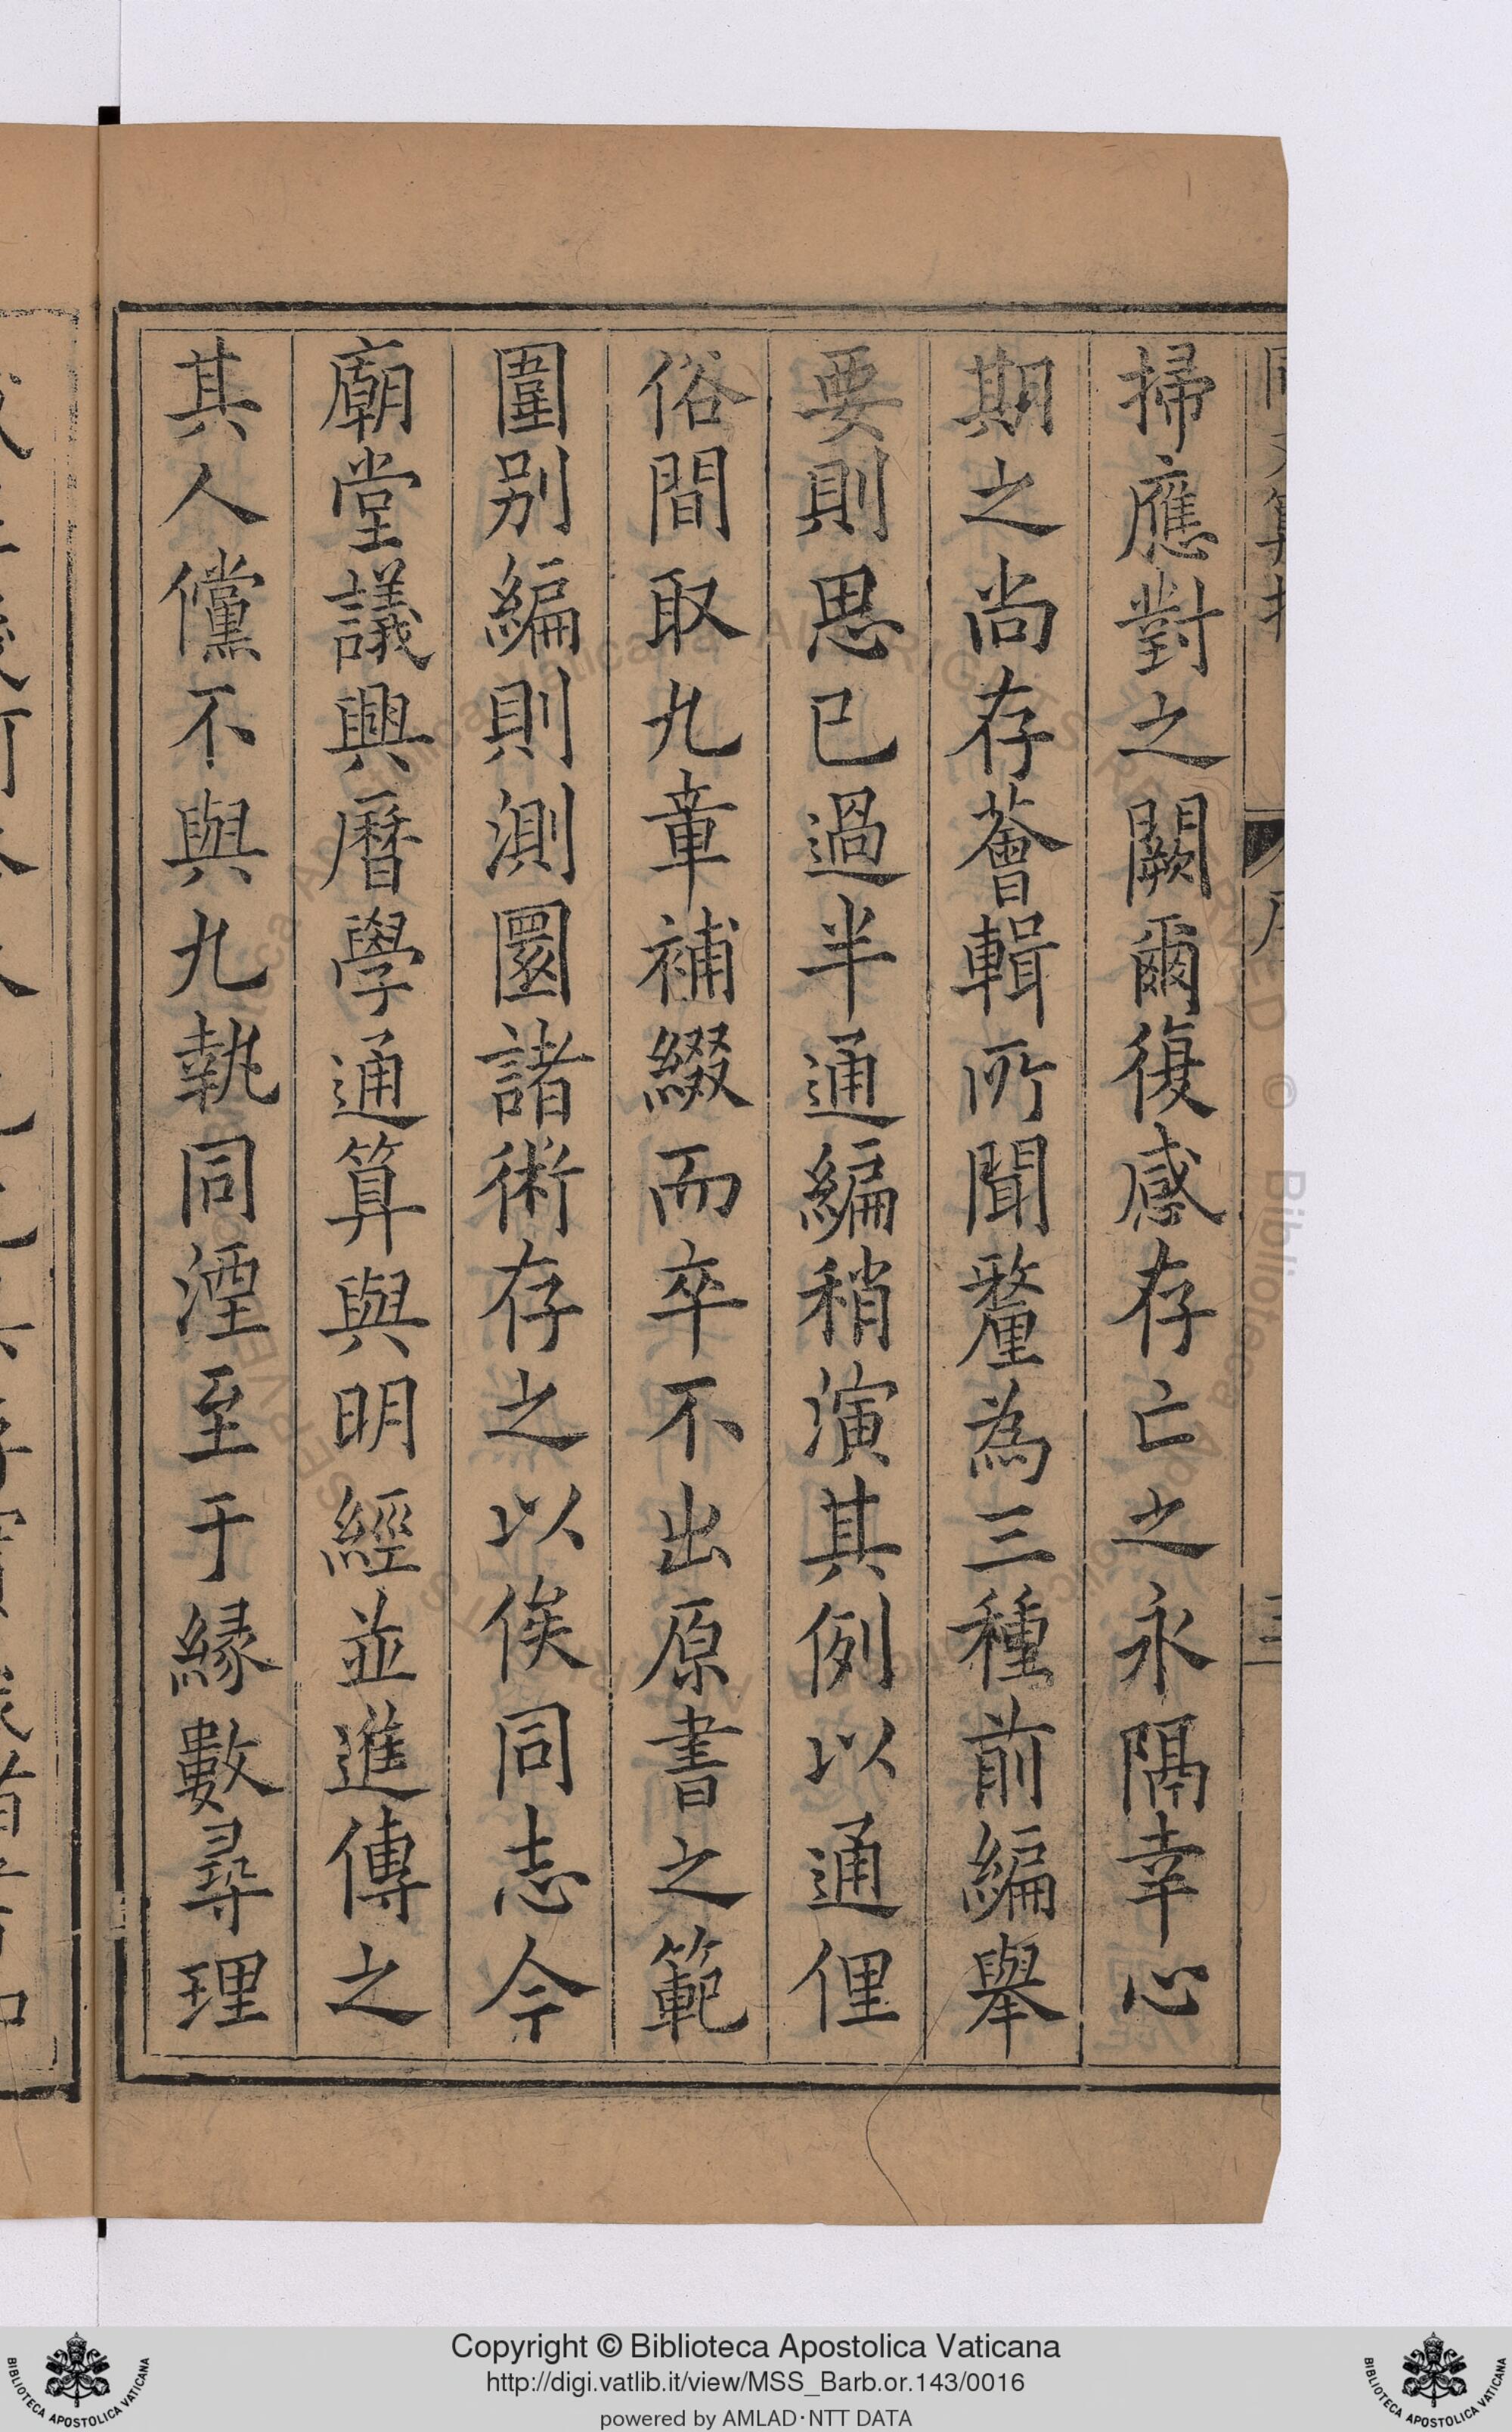 掃應對之闕爾復感存亡之永隔幸心
期之尚存薈輯所聞釐為三種前編舉
要則思已過半通編稍演其例以通俚
俗間取九章補綴而卒不出原書之範
圍别編則測圜諸術存之以俟同志今
廟堂議興曆學通算與明經並進傳之
其人儻不與九執同湮至于緣數尋理
Copyright © Biblioteca Apostolica Vaticana
http://digi.vatlib.it/view/MSS_Barb.or.143/0016
powered by AMLAD·NTT DATA
BIBLIOTECA APOSTOLICA VATICANA
BIBLIOTECA APOSTOLICA VATICANA